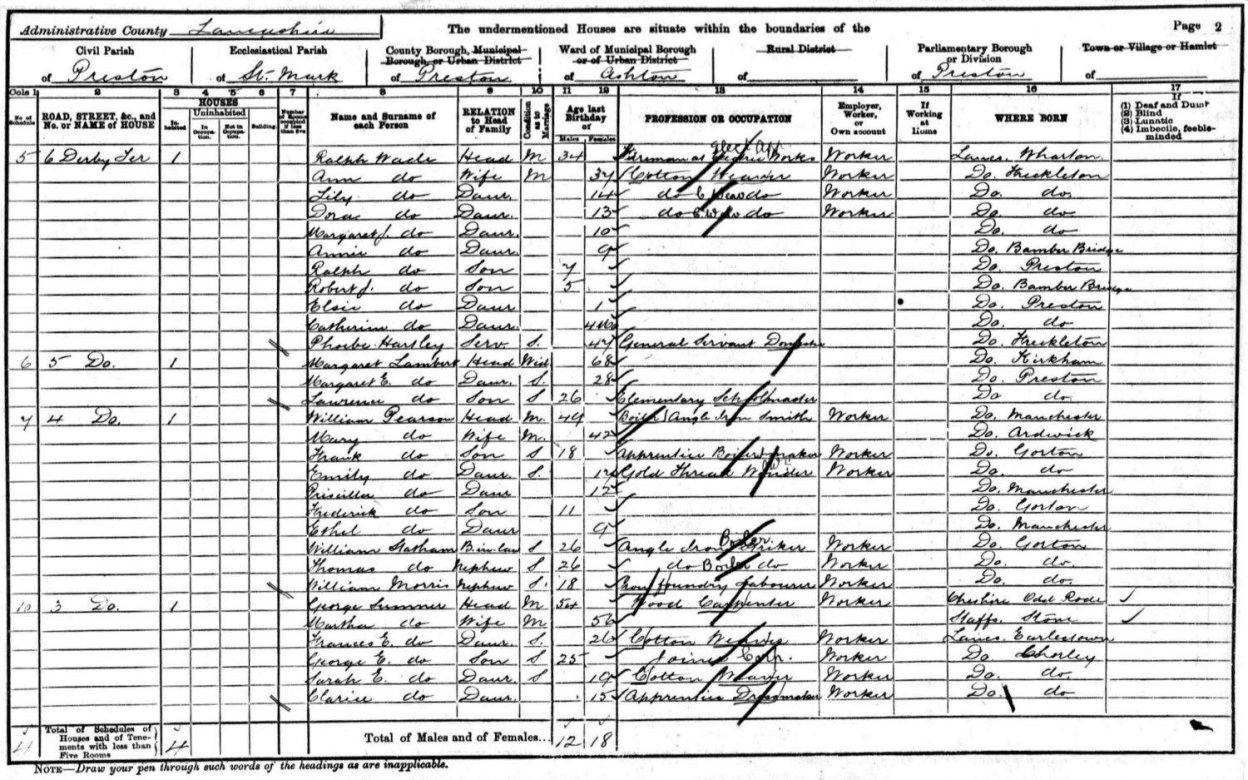 Administrative County Lancashire The undermentioned Houses are situate within the boundaries of the Page 2
Civil Parish of Preston
Ecclesiastical Parish of St. Mark
County Borough, Municipal Borough, or Urban District of Preston
Ward of Municipal Borough or of Urban District of Ashton
Rural District of
Parliamentary Borough or Division of Preston
Town or Village or Hamlet of
Cols 1 2 3 4 5 6 7 8 9 10 11 12 13 14 15 16 17
No. of Schedule
ROAD, STREET, &c., and No. or NAME of HOUSE
HOUSES
Inhabited
Uninhabited
In Occupation.
Not in Occupation.
Building.
Number of Rooms occupied if less than five
Name and Surname of each Person
RELATION to Head of Family
Condition as to Marriage
Age last Birthday of
Males Females
PROFESSION OR OCCUPATION
Employer, Worker, or Own account
If Working at Home
WHERE BORN
If
(1) Deaf and Dumb
(2) Blind
(3) Lunatic
(4) Imbecile, feeble-minded
5 6 Derby Ter 1 Ralph Wade Head M 34 Fireman at Works Worker Lancs. Wharton
Ann do Wife M 37 Cotton Weaver Worker Do. Freckleton
Lily do Daur. 14 do do Worker Do. do.
Dora do Daur. 13 do do Worker Do. do
Margaret J. do Daur. 10 Do. do
Annie do Daur. 9 Do. Bamber Bridge
Ralph do Son 7 Do. Preston
Robert J. do Son 5 Do. Bamber Bridge
Elsie do Daur 1 Do. Preston
Catherine do Daur. Do. do
Phoebe Serv. S. 47 General Servant Domestic Do. Freckleton
6 5 Do. 1 Margaret Lambert Head Wid 68 Do. Kirkham
Margaret E. do Daur. S. 28 Do. Preston
Lawrence do Son S 26 Elementary Schoolmaster Do. do
7 4 Do. 1 William Pearson Head M. 49 Boiler Angle Iron Smith Worker Do. Manchester
Mary do Wife M. 42 Do. Ardwick
Frank do Son S 18 Apprentice Boilermaker Worker Do. Gorton
Emily do Daur. S. Gold Thread Winder Worker Do. do
Priscilla do Daur 12 Do. Manchester
Frederick do Son 11 Do. Gorton
Ethel do Daur 9 Do. Manchester
William Statham B. in. law S 26 Angle Iron Boiler Worker Do. Gorton
Thomas do Nephew S 26 do Boiler do Worker Do. do
William Morris Nephew S. 18 Iron foundry Labourer Worker Do. do.
10 3 Do. 1 George Sumner Head M 54 Wood Carpenter Worker Cheshire Odd Rode
Martha do Wife M 56 Staffs. Stone
Frances E. do Daur. S. 26 Cotton Weaver Worker Lancs. Earlestown
George E. do Son S 25 Joiner Worker Do. Chorley
Sarah E. do Daur. S 19 Cotton Weaver Worker Do. do.
Clarice do Daur. 15 Apprentice Dressmaker Worker Do. do
4 Total of Schedules of Houses and of Tenements with less than Five Rooms 4 Total of Males and of Females... 12 18
NOTE—Draw your pen through such words of the headings as are inapplicable.